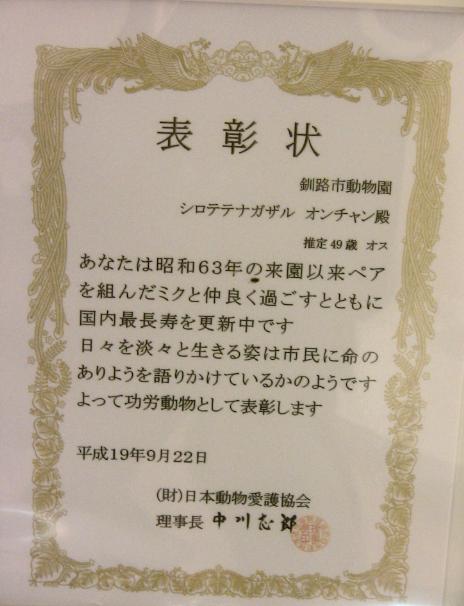 表彰状
釧路市動物園
シロテテナガザル オンチャン殿
推定49歳 オス
あなたは昭和63年の来園以来ペア
を組んだミクと仲良く過ごすとともに
国内最長寿を更新中です
日々を淡々と生きる姿は市民に命の
ありようを語りかけているかのようです
よって功労動物として表彰します
平成19年9月22日
(財)日本動物愛護協会
理事長 中川志郎